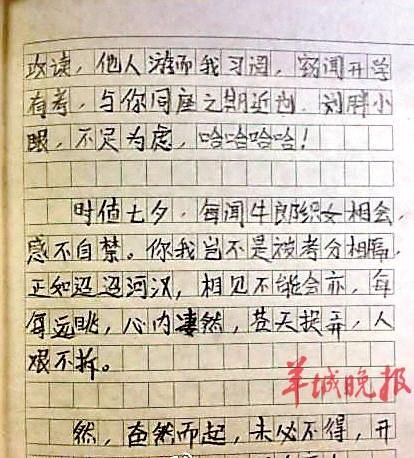 攻读，他人游而我习词，窃闻开学
有考，与你同座之期近也。刘胖小
眼，不足为虑，哈哈哈哈！
时值七夕，每闻牛郎织女相会，
感不自禁。你我岂不是被考分相隔，
正如迢迢河汉，相见不能会亦，每
每远眺，心内凄然，苍天捉弄，人
艰不拆。
羊城晚报
然，奋然而起，未必不得，开